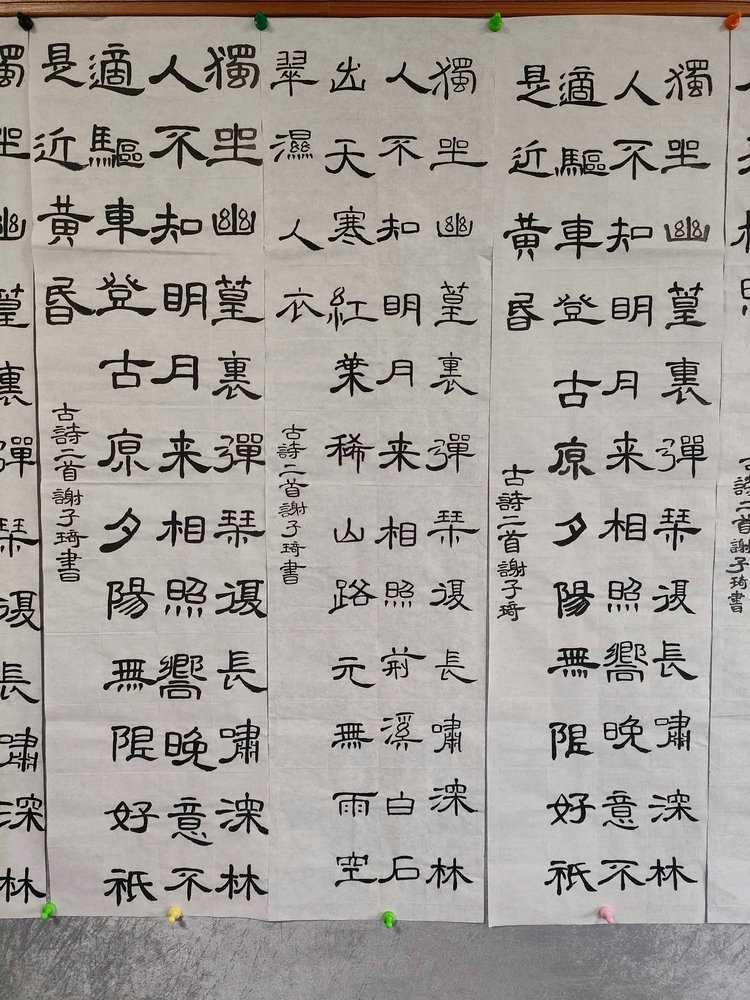 古詩二首謝子琦書
獨坐幽篁裏彈琴復長嘯深林
人不知明月来相照嚮晚意不
適驅車登古原夕陽無限好祇
是近黃昏
古詩二首謝子琦
獨坐幽篁裏彈琴復長嘯深林
人不知明月来相照荊溪白石
出天寒紅葉稀山路元無雨空
翠濕人衣
古詩二首謝子琦書
獨坐幽篁裏彈琴復長嘯深林
人不知明月来相照嚮晚意不
適驅車登古原夕陽無限好祇
是近黃昏
古詩二首謝子琦書
獨坐幽篁裏彈琴復長嘯深林